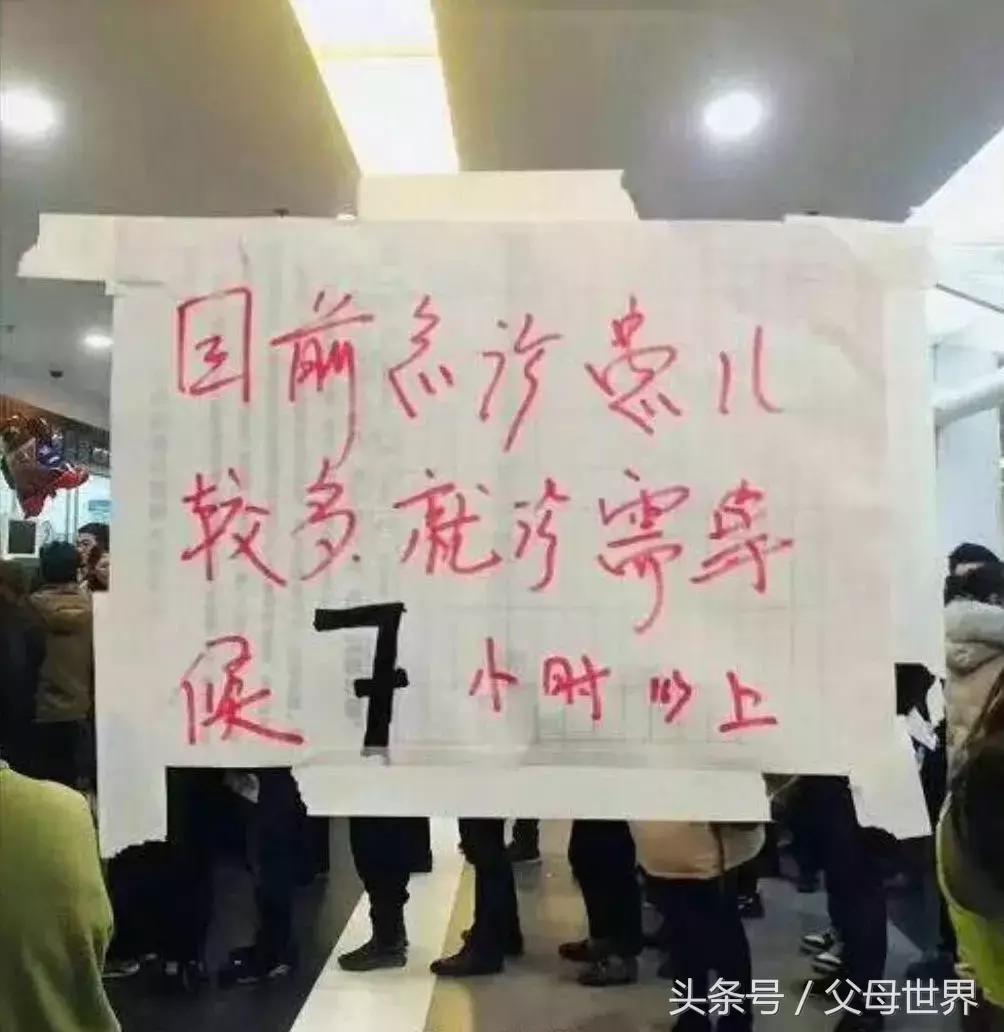 目前急诊患儿
较多就诊需等
候7小时以上
头条号 / 父母世界